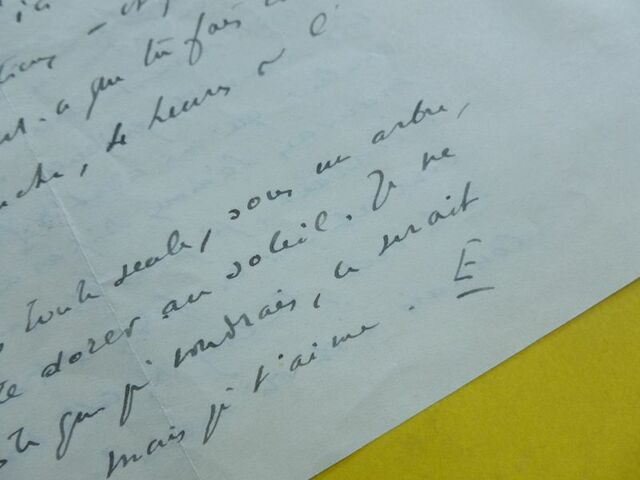 que tu fais
heures
toute seule, sous un arbre,
dorer au soleil. Je ne
que je voudrais, ce serait
mais je t'aime. E